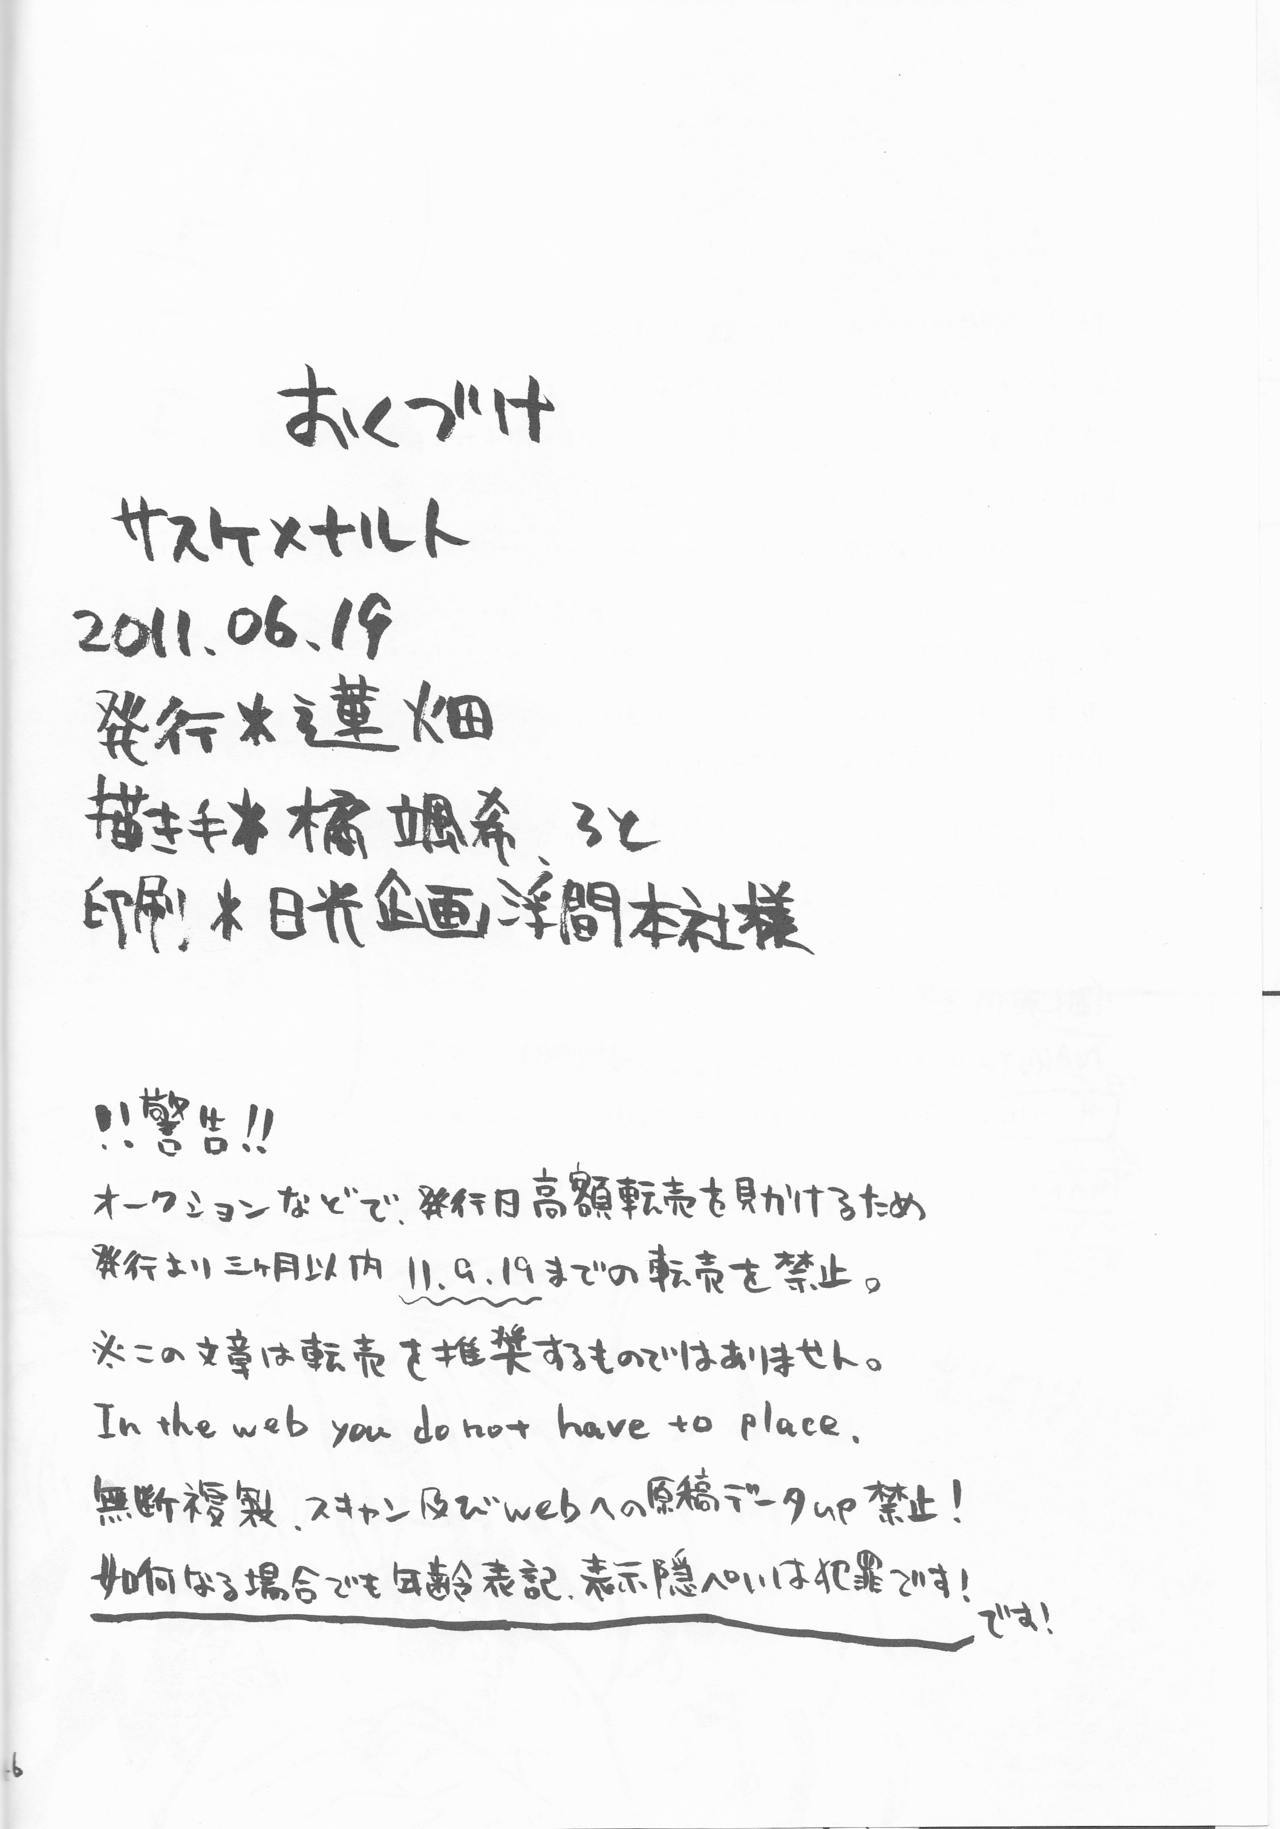 おくづけ
サスケ×ナルト
2011.06.19
発行*蓮畑
描き手*橘 颯希、ろと
印刷*日光企画 浮間本社様
!!警告!!
オークションなどで、発行日高額転売を見かけるため
発行より三ヶ月以内 11.9.19までの転売を禁止。
※この文章は転売を推奨するものではありません。
In the web you do not have to place.
無断複製、スキャン及びwebへの原稿データup禁止!
如何なる場合でも年齢表記、表示隠ぺいは犯罪です!
です!